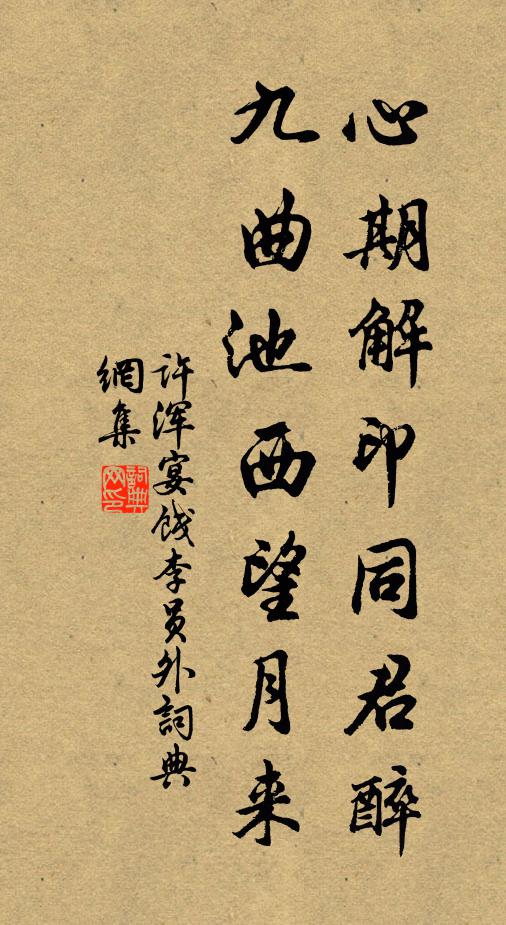 心期解印同君醉
九曲池西望月来
许浑宴饯李员外詞典
網集
詞典网印